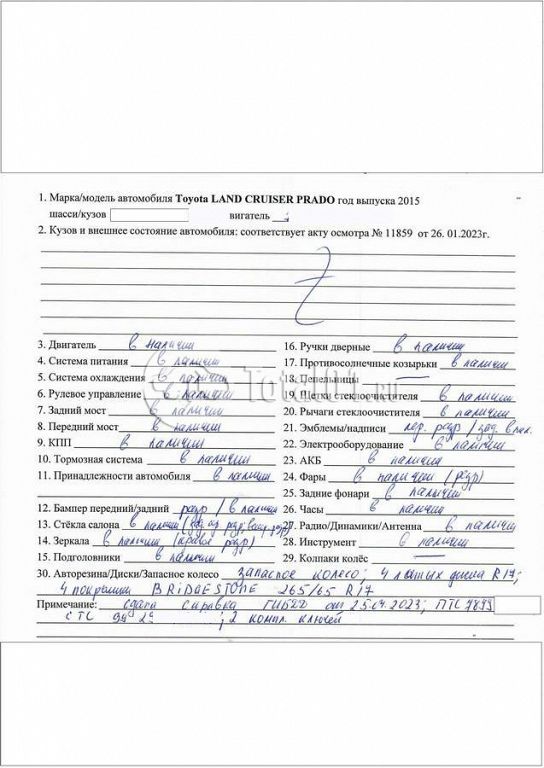 1. Марка/модель автомобиля Toyota LAND CRUISER PRADO год выпуска 2015
шасси/кузов вигатель
2. Кузов и внешнее состояние автомобиля: соответствует акту осмотра № 11859 от 26. 01.2023г.
3. Двигатель в наличии
4. Система питания в наличии
5. Система охлаждения в наличии
6. Рулевое управление в наличии
7. Задний мост в наличии
8. Передний мост в наличии
9. КПП в наличии
10. Тормозная система в наличии
11. Принадлежности автомобиля в наличии
12. Бампер передний/задний разр / в наличии
13. Стёкла салона в наличии
14. Зеркала в наличии (правое разр)
15. Подголовники в наличии
16. Ручки дверные в наличии
17. Противосолнечные козырьки в наличии
18. Пепельницы —
19. Щетки стеклоочистителя в наличии
20. Рычаги стеклоочистителя в наличии
21. Эмблемы/надписи пер. разр / зад. в нал.
22. Электрооборудование в наличии
23. АКБ в наличии
24. Фары в наличии (разр)
25. Задние фонари в наличии
26. Часы в наличии
27. Радио/Динамики/Антенна в наличии
28. Инструмент в наличии
29. Колпаки колёс —
30. Авторезина/Диски/Запасное колесо запасное колесо; 4 литых диска R17;
4 покрышки BRIDGESTONE 265/65 R17
Примечание: сдана справка ГИБДД от 25.04.2023; ПТС 78УУ
СТС 99 29 ; 2 компл. ключей
Total01.ru